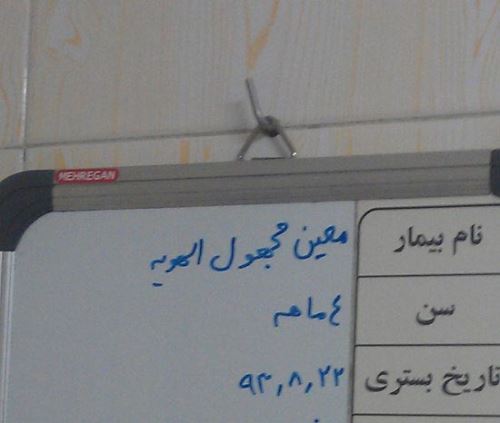 MEHREGAN
نام بیمار معین مجهول الهویه
سن ٤ ماهه
تاریخ بستری ۹۳,۸,۲۲